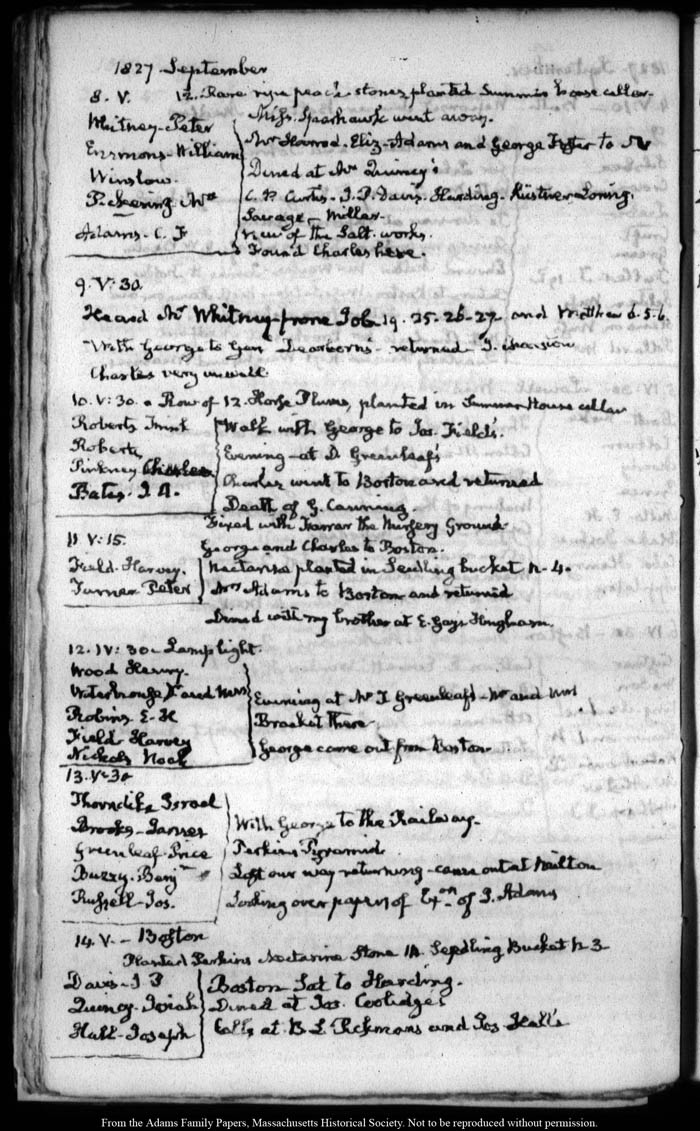 1827 September
8. V. 12. Rare ripe peach stones planted Summer house cellar.
Whitney-Peter Miss Sparhawk went away.
Emmons-William Mrs Harrod. Eliz. Adams and George Foster to
Winslow. Dined at Mr Quincy's
Pickering C. P. Curtis. J. P. Davis. Harding. Loring.
Savage Millar
Adams-C. F View of the Salt works.
Found Charles here.
9. V: 30.
Heard Mr Whitney from Job 19. 25. 26-27 and Matthew 6. 5. 6.
With George to Gen Dearborn's - returned
Charles very unwell.
10. V: 30. a Row of 12. Horse Plums, planted in Summer House cellar
Roberts Walk with George to Jos. Field's.
Roberts Evening at D. Greenleaf's
Pinkney Charles Charles went to Boston and returned
Bates. J. A. Death of G. Canning.
Fixed with Farrar the Nursery Ground
11 V: 15. George and Charles to Boston.
Field-Harvey. Nectarine planted in Seedling bucket N. 4.
Turner Peter Mrs Adams to Boston and returned
Dined with my brother at E. Gays Hingham.
12. IV: 30. Lamplight.
Wood Henry.
Waterhouse and Mrs Evening at Mr T Greenleaf's - Mr and Mrs
Robins E-H Bracket there
Field Harvey George came out from Boston.
Nickols Noah
13. V-30
Thorndike Israel
Brooks-James With George to the Railway.
Greenleaf-Price Perkins Pyramid
Bussy-Benjn Lost our way returning - came out at Milton
Russell-Jos. Looking over papers of Exon of J. Adams
14. V. - Boston
Planted Perkins Nectarine Stone Seedling Bucket N. 3
Davis-J P Boston Sat to Harding.
Quincy-Josiah Dined at Jos. Coolidges
Hall-Joseph Calls at B. L. Pickmans and Jos Hall's
From the Adams Family Papers, Massachusetts Historical Society. Not to be reproduced without permission.